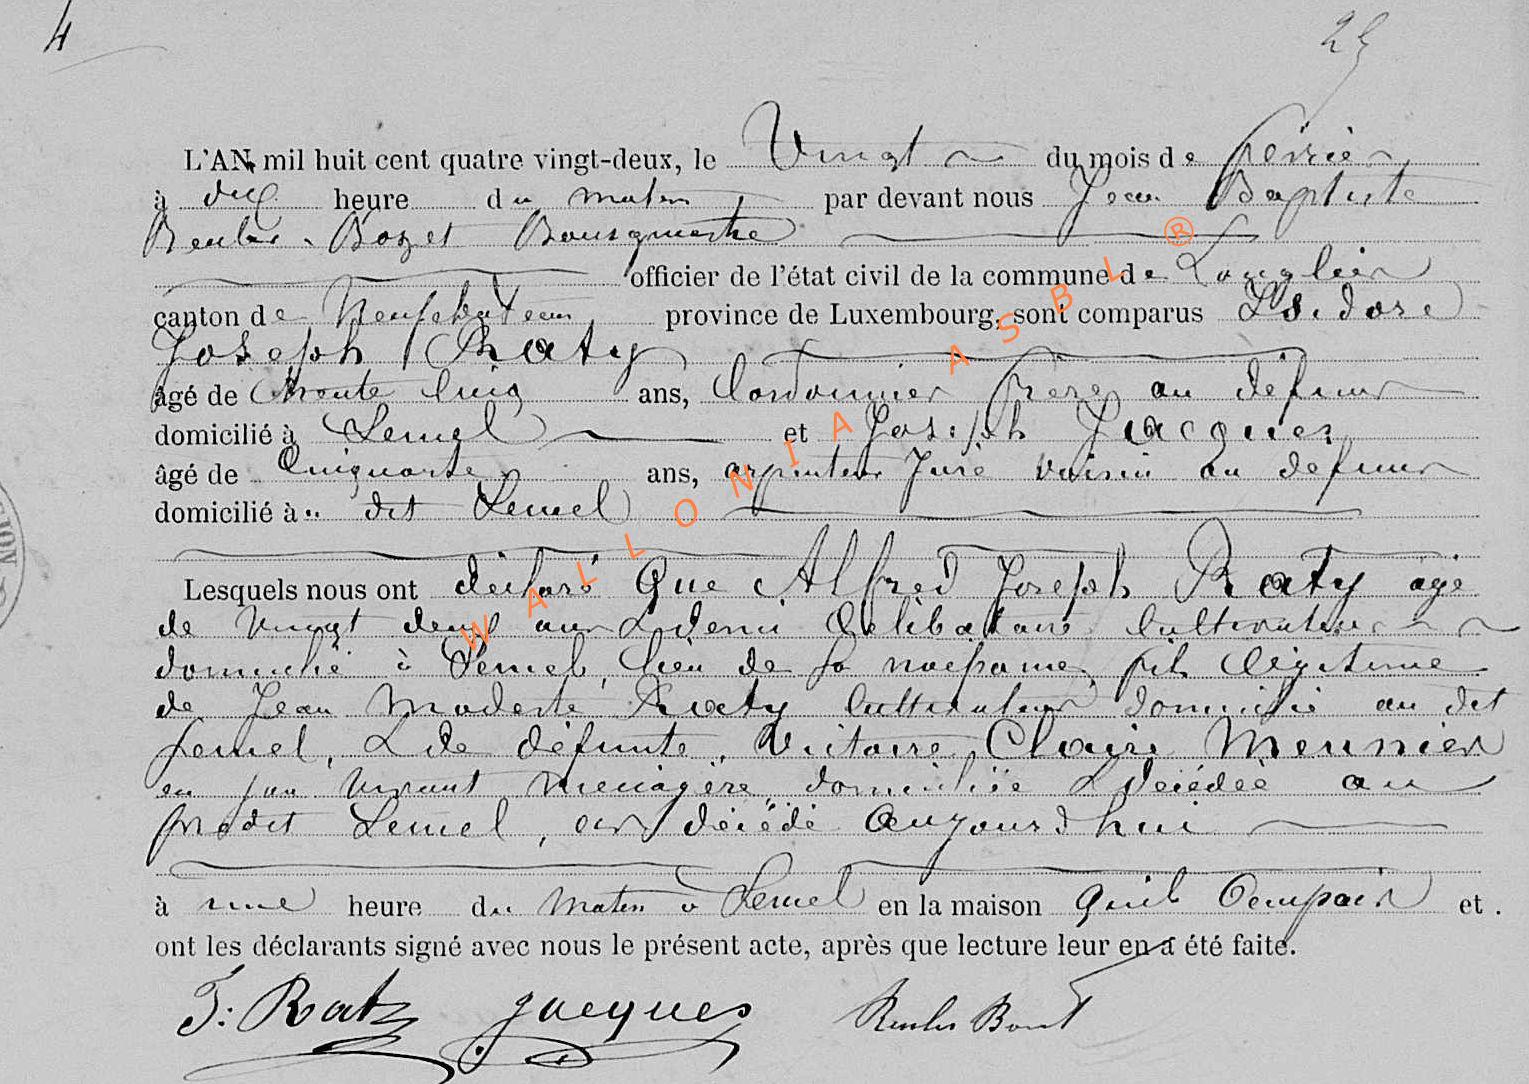 4
25
L'AN mil huit cent quatre vingt-deux, le Vingt du mois de février
à dix heure du matin par devant nous Jean Baptiste
Reuler - Bozet Bourgmestre
officier de l'état civil de la commune de Longlier
canton de Neufchateau province de Luxembourg, sont comparus Isidore
Joseph Raty
âgé de trente cinq ans, Cordonnier frère au défunt
domicilié à Lemel et Joseph Jacques
âgé de Cinquante ans, arpenteur juré voisin au defunt
domicilié à dit Lemel
Lesquels nous ont déclaré Que Alfred Joseph Raty agé
de Vingt deux ans & demi Célibataire Cultivateur
domicilié à Lemel, lieu de sa naissance, fils légitime
de Jean Modeste Raty Cultivateur domicilié au dit
Lemel, & de défunte, Victoire, Claire Meunier
en son vivant menagère, domiciliée & décédée au
prédit Lemel, est décédé Aujourd'hui
à une heure du matin à Lemel en la maison qu'il Occupait et
ont les déclarants signé avec nous le présent acte, après que lecture leur en a été faite.
J: Raty Jacques Reuler Bozet
WALLONIA ASBL ®